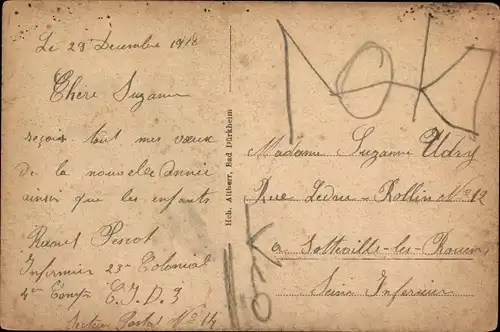 Le 29 Decembre 1918
Chère Suzanne
reçois tout mes vœux
de la nouvelle année
ainsi que les enfants
Raoul
Infirmier 23e Colonial
4e Comp C.I.D.3
Secteur Postal No 14
Hch. Altherr, Bad Dürkheim
Madame Suzanne Udry
Rue Ledru-Rollin No 12
a Sotteville-les-Rouen
Seine Inferieur